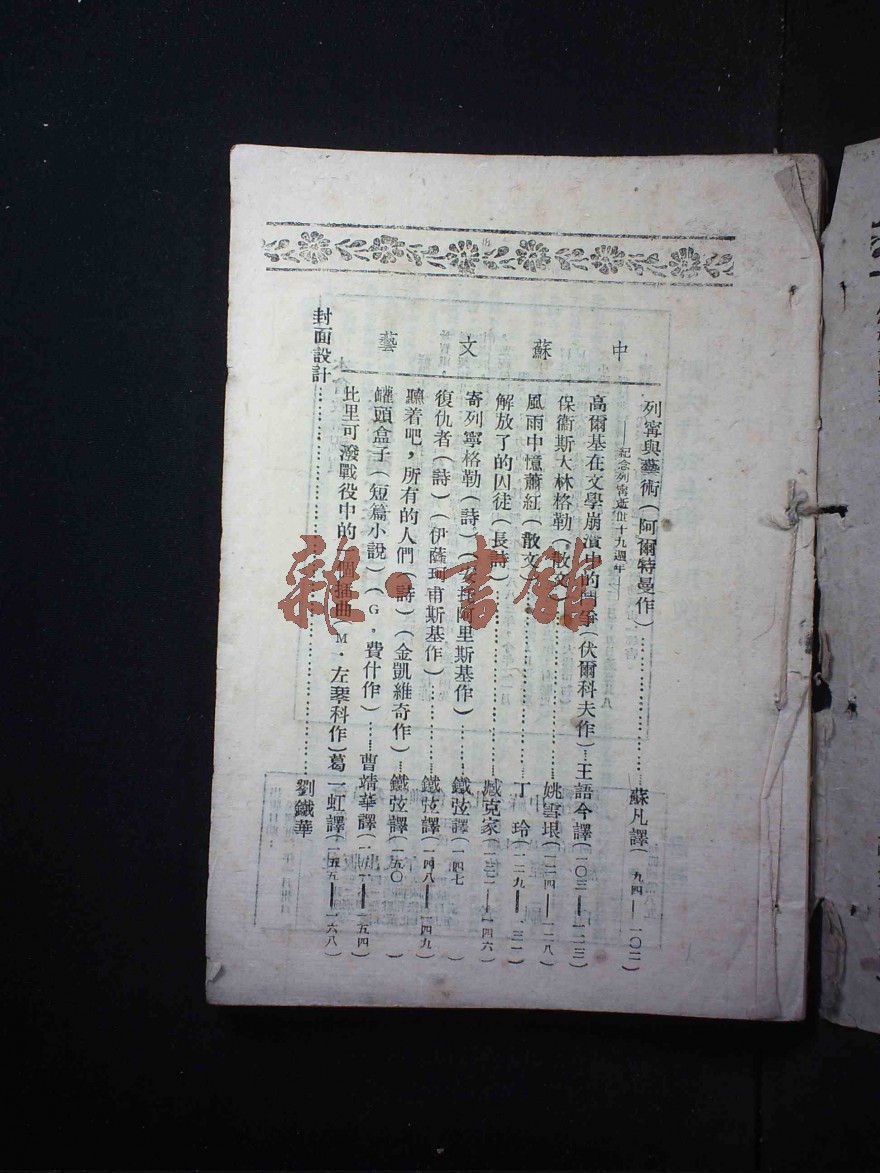 中蘇文藝
列寧與藝術(阿爾特曼作)……蘇凡譯(九四—一〇二)
——紀念列寧逝世十九週年——
高爾基在文學崩潰中的鬥爭(伏爾科夫作)…王語今譯(一〇三—一二三)
保衛斯大林格勒(散文)……姚雪垠(一二四—一二八)
風雨中憶蕭紅(散文)……丁玲(一二九—一三一)
解放了的囚徒(長詩)……臧克家(一三二—一四六)
寄列寧格勒(詩)(阿里斯基作)……鐵弦譯(一四七)
復仇者(詩)(伊薩珂甫斯基作)……鐵弦譯(一四八—一四九)
聽着吧,所有的人們(詩)(金凱維奇作)…鐵弦譯(一五〇)
罐頭盒子(短篇小說)(G,費什作)……曹靖華譯(一五一—一五四)
比里可潑戰役中的一個插曲(M·左琴科作)葛一虹譯(一五五—一六八)
封面設計……劉鐵華
雜·書館